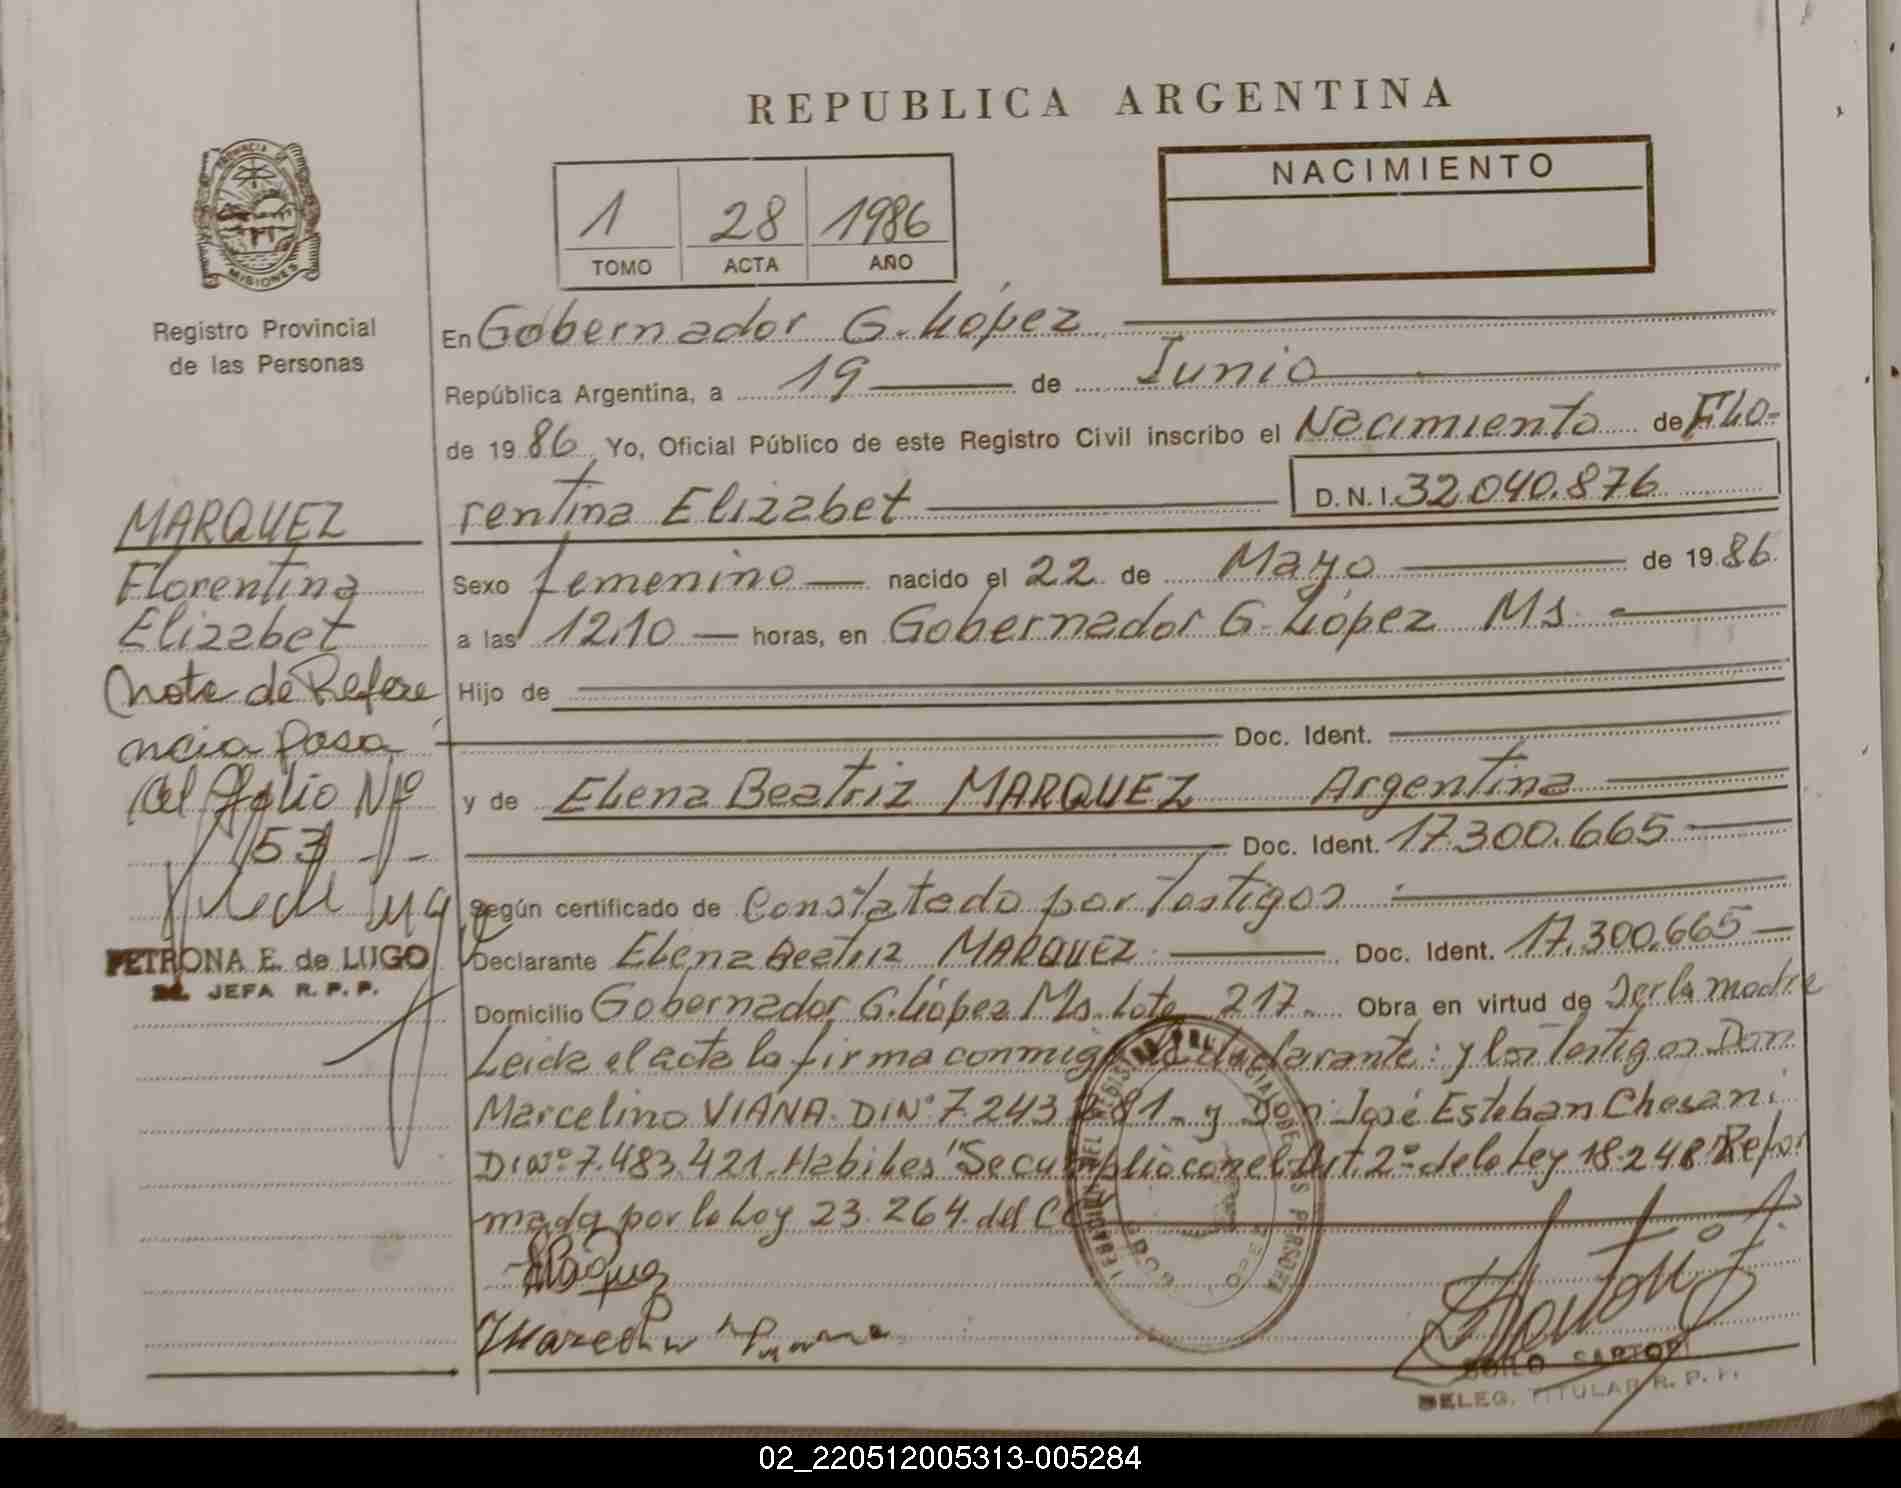 REPUBLICA ARGENTINA
PROVINCIA DE
MISIONES
Registro Provincial
de las Personas
1 28 1986
TOMO ACTA AÑO
NACIMIENTO
En Gobernador G. López
República Argentina, a 19 de Junio
de 1986 Yo, Oficial Público de este Registro Civil inscribo el Nacimiento de Flo-
rentina Elizabet D.N.I. 32.040.876
Sexo femenino nacido el 22 de Mayo de 1986.
a las 12.10 horas, en Gobernador G. López Ms
Hijo de
Doc. Ident.
y de Elena Beatriz MARQUEZ Argentina
Doc. Ident. 17.300.665
Según certificado de Constatado por Testigos
Declarante Elena Beatriz MARQUEZ Doc. Ident. 17.300.665
Domicilio Gobernador G. López Ms. Lote 217. Obra en virtud de Ser la madre
Leida el acta la firma conmigo la declarante: y los Testigos Don
Marcelino VIANA. DINº 7.243 81 y Don José Esteban Chesani
DINº 7.483.421. Habiles "Se cumplio con el Art. 2º de la Ley 18.248 Refor
mada por la Ley 23.264. del
MARQUEZ
Florentina
Elizabet
Nota de Refere
ncia pasa
al folio Nº
53
PETRONA E. de LUGO
JEFA R.P.P.
SOILO SARTORI
DELEG. TITULAR R.P.P.
02_220512005313-005284